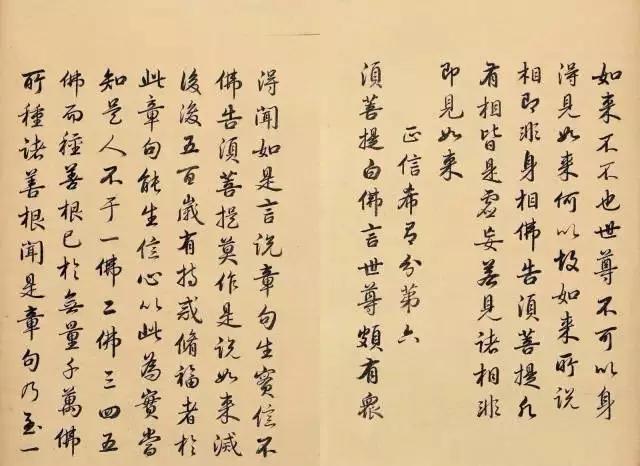 如来不不也世尊不可以身
得見如来何以故如来所説
相即非身相佛告湏菩提凡
有相皆是虚妄若見諸相非
即見如来
正信希有分第六
湏菩提白佛言世尊頗有衆
得聞如是言説章句生實信不
佛告湏菩提莫作是説如来滅
後後五百歲有持戒脩福者於
此章句能生信心以此為實當
知是人不于一佛二佛三四五
佛而種善根已於無量千萬佛
所種諸善根聞是章句乃至一